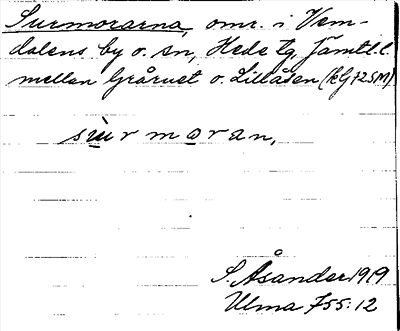 Surmorarna, omr. i Vem-
dalens by o. sn, Hede tg, Jämtl. l.
mellan Gråruet o. Lillåsen (kG 72 SM)
sùrmoran,
S. Åsander 1919
Ulma 755:12